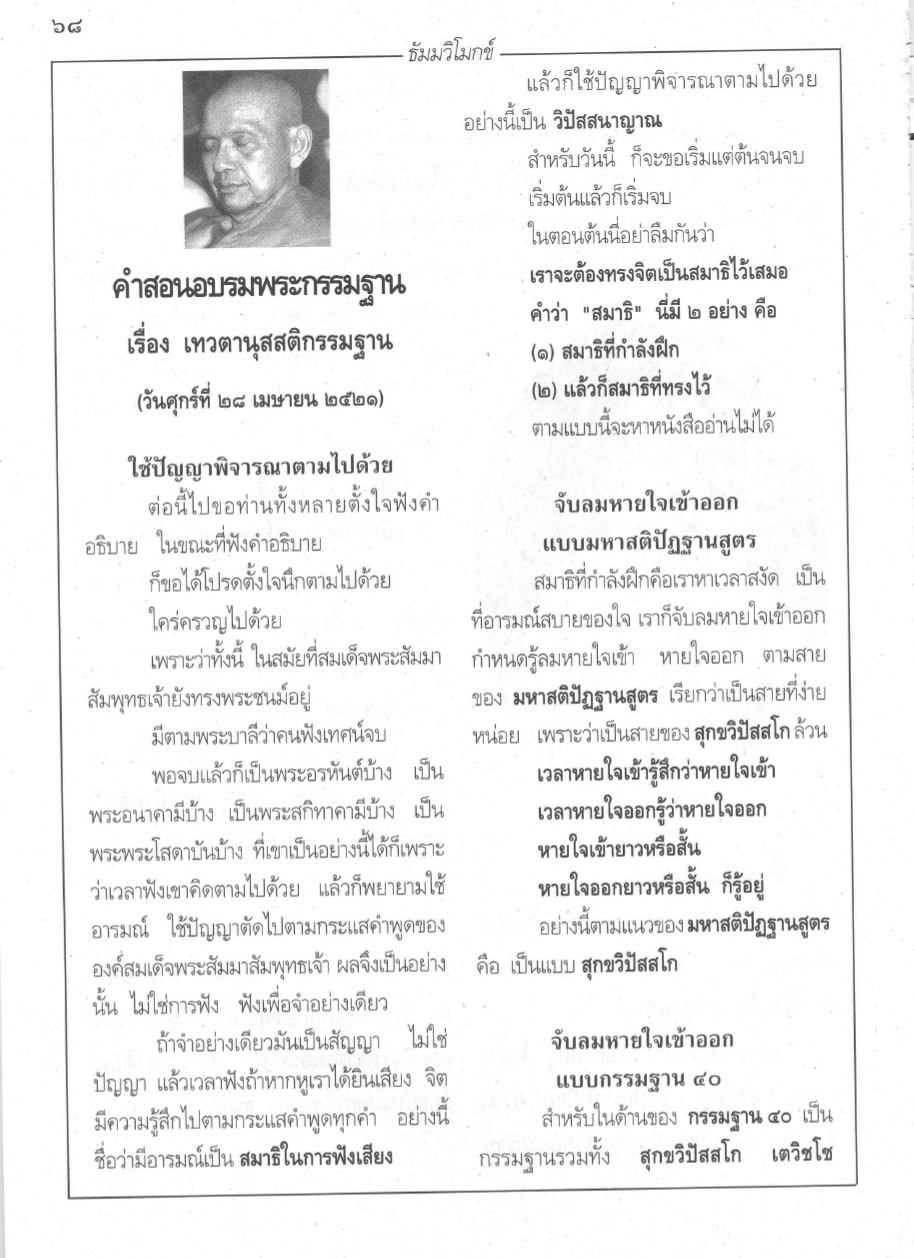 ๖๘
ธัมมวิโมกข์
คำสอนอบรมพระกรรมฐาน
เรื่อง เทวตานุสสติกรรมฐาน
(วันศุกร์ที่ ๒๘ เมษายน ๒๕๒๑)
ใช้ปัญญาพิจารณาตามไปด้วย
ต่อนี้ไปขอท่านทั้งหลายตั้งใจฟังคำ
อธิบาย ในขณะที่ฟังคำอธิบาย
ก็ขอได้โปรดตั้งใจนึกตามไปด้วย
ใคร่ครวญไปด้วย
เพราะว่าทั้งนี้ ในสมัยที่สมเด็จพระสัมมา
สัมพุทธเจ้ายังทรงพระชนม์อยู่
มีตามพระบาลีว่าคนฟังเทศน์จบ
พอจบแล้วก็เป็นพระอรหันต์บ้าง เป็น
พระอนาคามีบ้าง เป็นพระสกิทาคามีบ้าง เป็น
พระพระโสดาบันบ้าง ที่เขาเป็นอย่างนี้ได้ก็เพราะ
ว่าเวลาฟังเขาคิดตามไปด้วย แล้วก็พยายามใช้
อารมณ์ ใช้ปัญญาตัดไปตามกระแสคำพูดของ
องค์สมเด็จพระสัมมาสัมพุทธเจ้า ผลจึงเป็นอย่าง
นั้น ไม่ใช่การฟัง ฟังเพื่อจำอย่างเดียว
ถ้าจำอย่างเดียวมันเป็นสัญญา ไม่ใช่
ปัญญา แล้วเวลาฟังถ้าหากหูเราได้ยินเสียง จิต
มีความรู้สึกไปตามกระแสคำพูดทุกคำ อย่างนี้
ชื่อว่ามีอารมณ์เป็น สมาธิในการฟังเสียง
แล้วก็ใช้ปัญญาพิจารณาตามไปด้วย
อย่างนี้เป็น วิปัสสนาญาณ
สำหรับวันนี้ ก็จะขอเริ่มแต่ต้นจนจบ
เริ่มต้นแล้วก็เริ่มจบ
ในตอนต้นนี่อย่าลืมกันว่า
เราจะต้องทรงจิตเป็นสมาธิไว้เสมอ
คำว่า "สมาธิ" นี่มี ๒ อย่าง คือ
(๑) สมาธิที่กำลังฝึก
(๒) แล้วก็สมาธิที่ทรงไว้
ตามแบบนี้จะหาหนังสืออ่านไม่ได้
จับลมหายใจเข้าออก
แบบมหาสติปัฏฐานสูตร
สมาธิที่กำลังฝึกคือเราหาเวลาสงัด เป็น
ที่อารมณ์สบายของใจ เราก็จับลมหายใจเข้าออก
กำหนดรู้ลมหายใจเข้า หายใจออก ตามสาย
ของ มหาสติปัฏฐานสูตร เรียกว่าเป็นสายที่ง่าย
หน่อย เพราะว่าเป็นสายของ สุกขวิปัสสโก ล้วน
เวลาหายใจเข้ารู้สึกว่าหายใจเข้า
เวลาหายใจออกรู้ว่าหายใจออก
หายใจเข้ายาวหรือสั้น
หายใจออกยาวหรือสั้น ก็รู้อยู่
อย่างนี้ตามแนวของ มหาสติปัฏฐานสูตร
คือ เป็นแบบ สุกขวิปัสสโก
จับลมหายใจเข้าออก
แบบกรรมฐาน ๔๐
สำหรับในด้านของ กรรมฐาน ๔๐ เป็น
กรรมฐานรวมทั้ง สุกขวิปัสสโก เตวิชโช